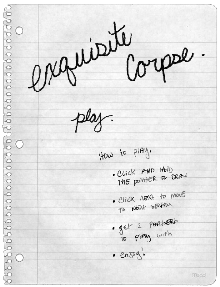 exquisite
corpse.
play.
how to play:
• click AND hold
the pointer to draw
• click next to move
to next screen
• get 2 partners
to play with
• enjoy!